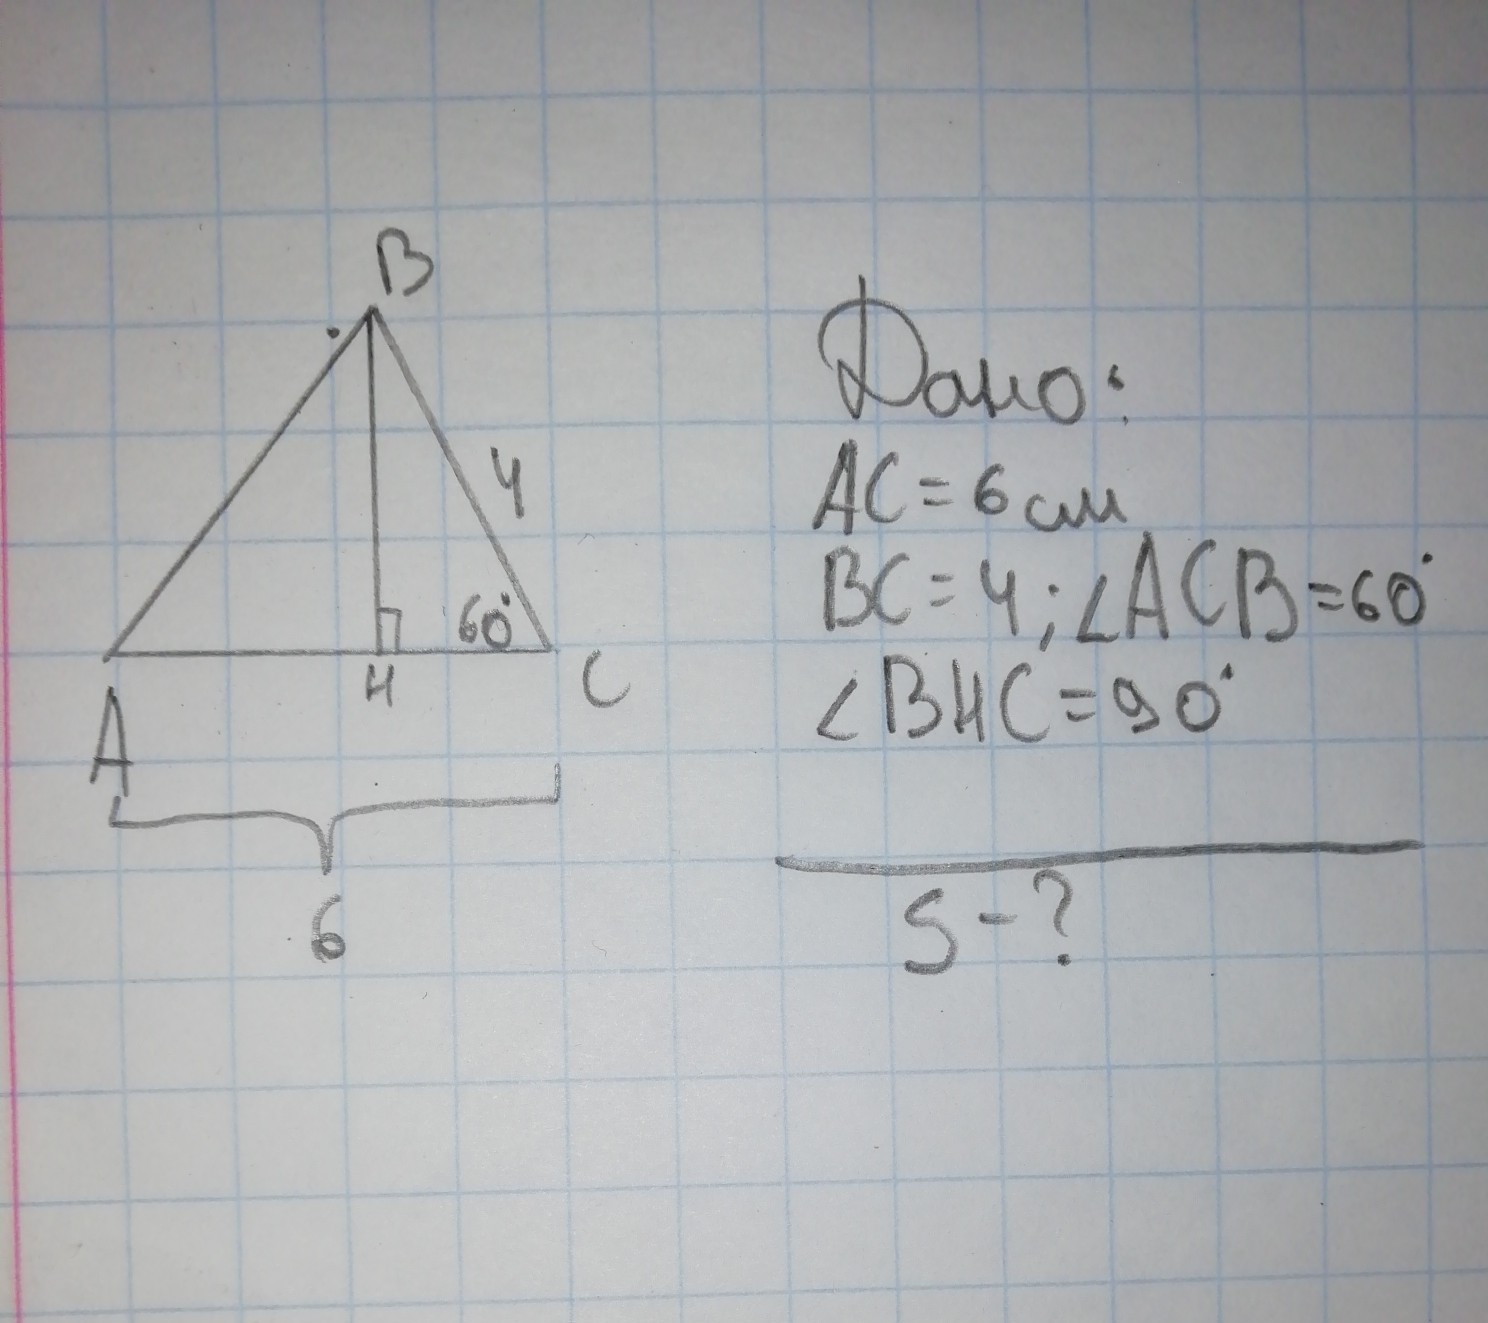 B
4
60°
A
H
C
6
Дано:
AC = 6 см
BC = 4; ∠ACB = 60°
∠BHC = 90°
S - ?